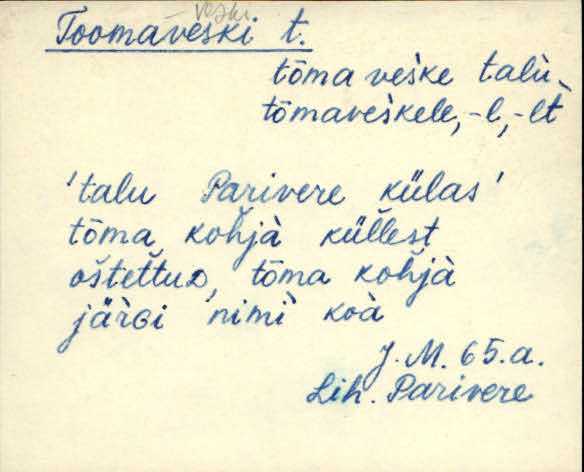 -veski
Toomaveski t.
tōma veśke talù
tōmaveśkele, -l, -lt
'talu Parivere külas'
tōma kohjà küĺlest
ośtettuD, tōma kohjà
järGi nimì koà
J. M. 65.a.
Lih. Parivere